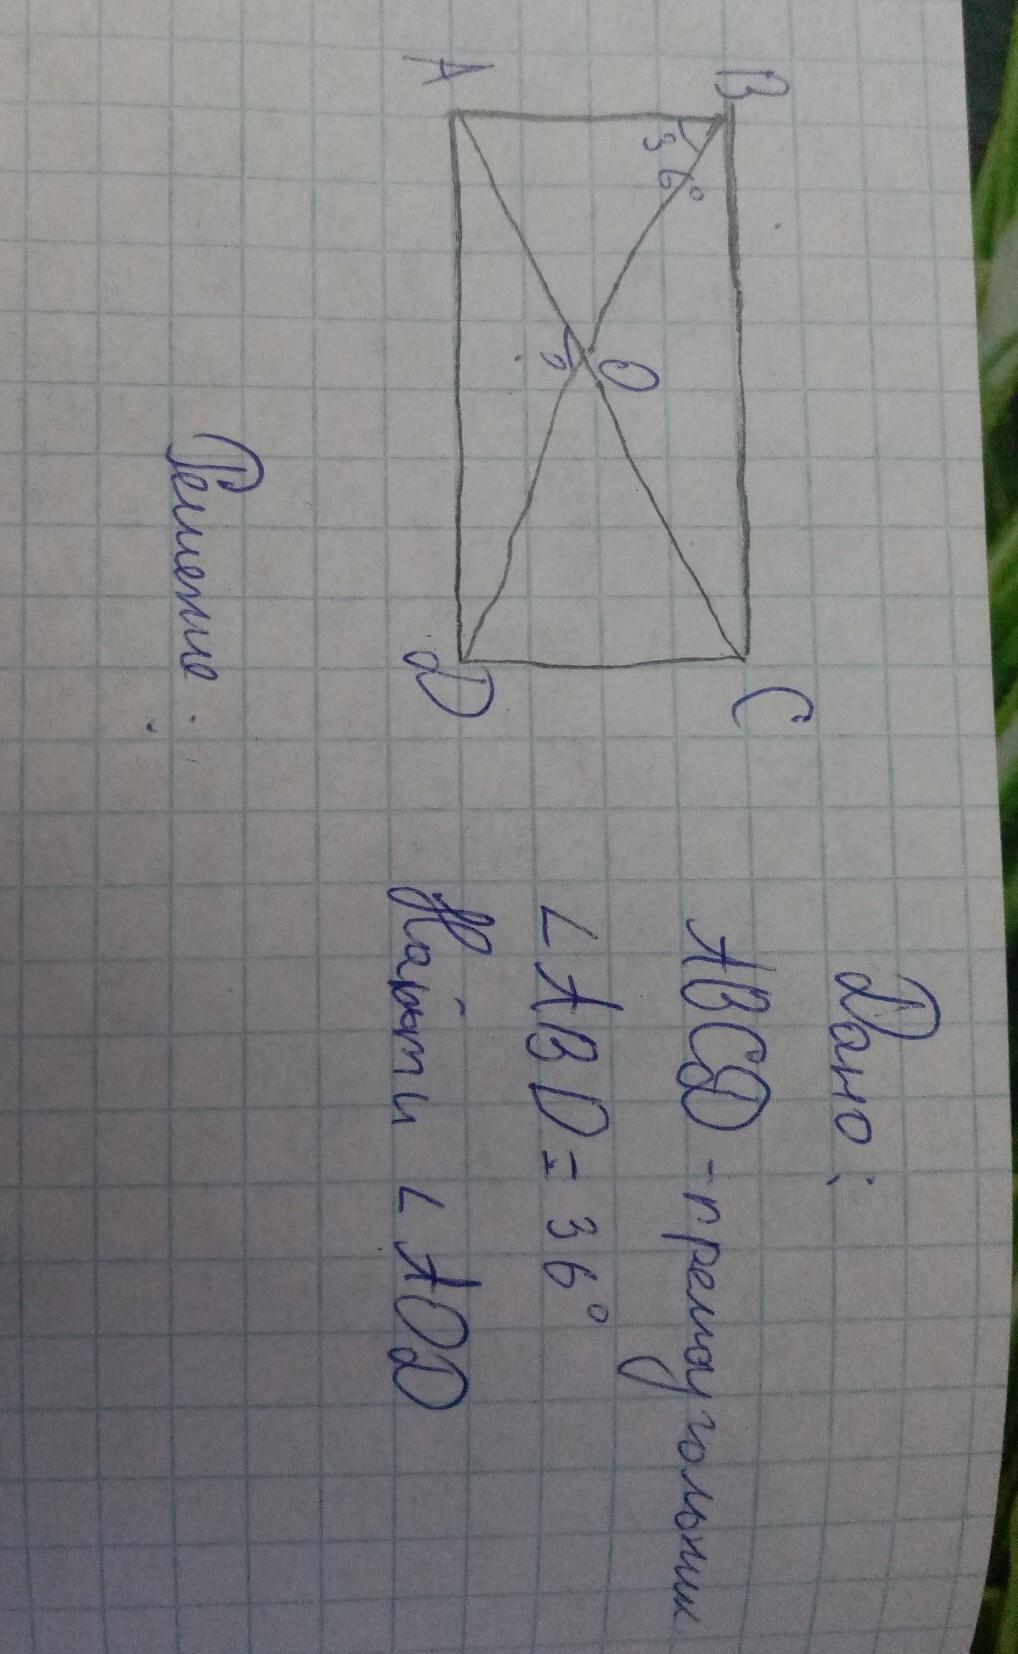 Дано:
ABCD - прямоугольник
∠ABD = 36°
Найти ∠AOD
B
C
36°
O
?
A
D
Решение: